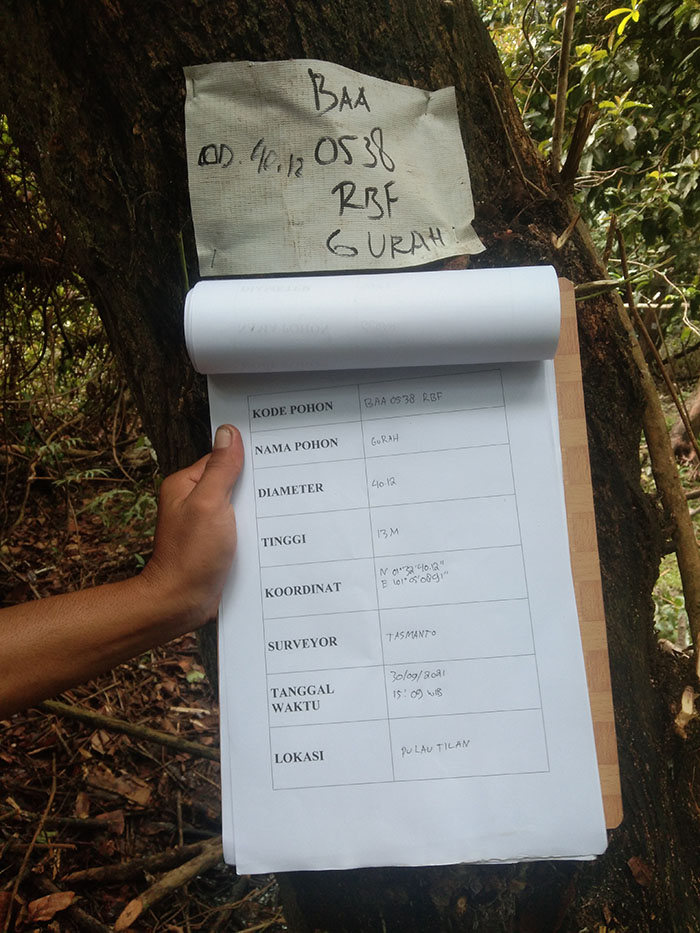 BAA
OD. 40.12 0538
RBF
GURAH
KODE POHON BAA 0538 RBF
NAMA POHON GURAH
DIAMETER 40.12
TINGGI 13 M
KOORDINAT N 01°32'40.12"
E 101°05'08.91"
SURVEYOR TASMANTO
TANGGAL 30/09/2021
WAKTU 15:09 WIB
LOKASI PULAU TILAN